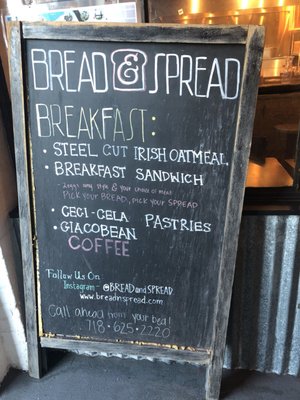 BREAD & SPREAD
BREAKFAST:
• STEEL CUT IRISH OATMEAL
• BREAKFAST SANDWICH
2 eggs any style & your choice of meat
PICK YOUR BREAD, PICK YOUR SPREAD
• CECI-CELA PASTRIES
• GIACOBEAN
COFFEE
Follow Us On
Instagram - @BREADandSPREAD
www.breadnspread.com
Call ahead from your bed!
718-625-2220